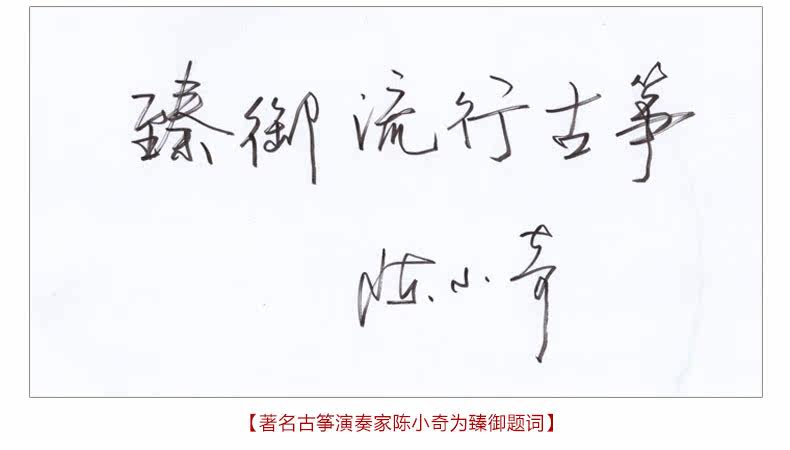 臻御流行古筝
陈小奇
【著名古筝演奏家陈小奇为臻御题词】